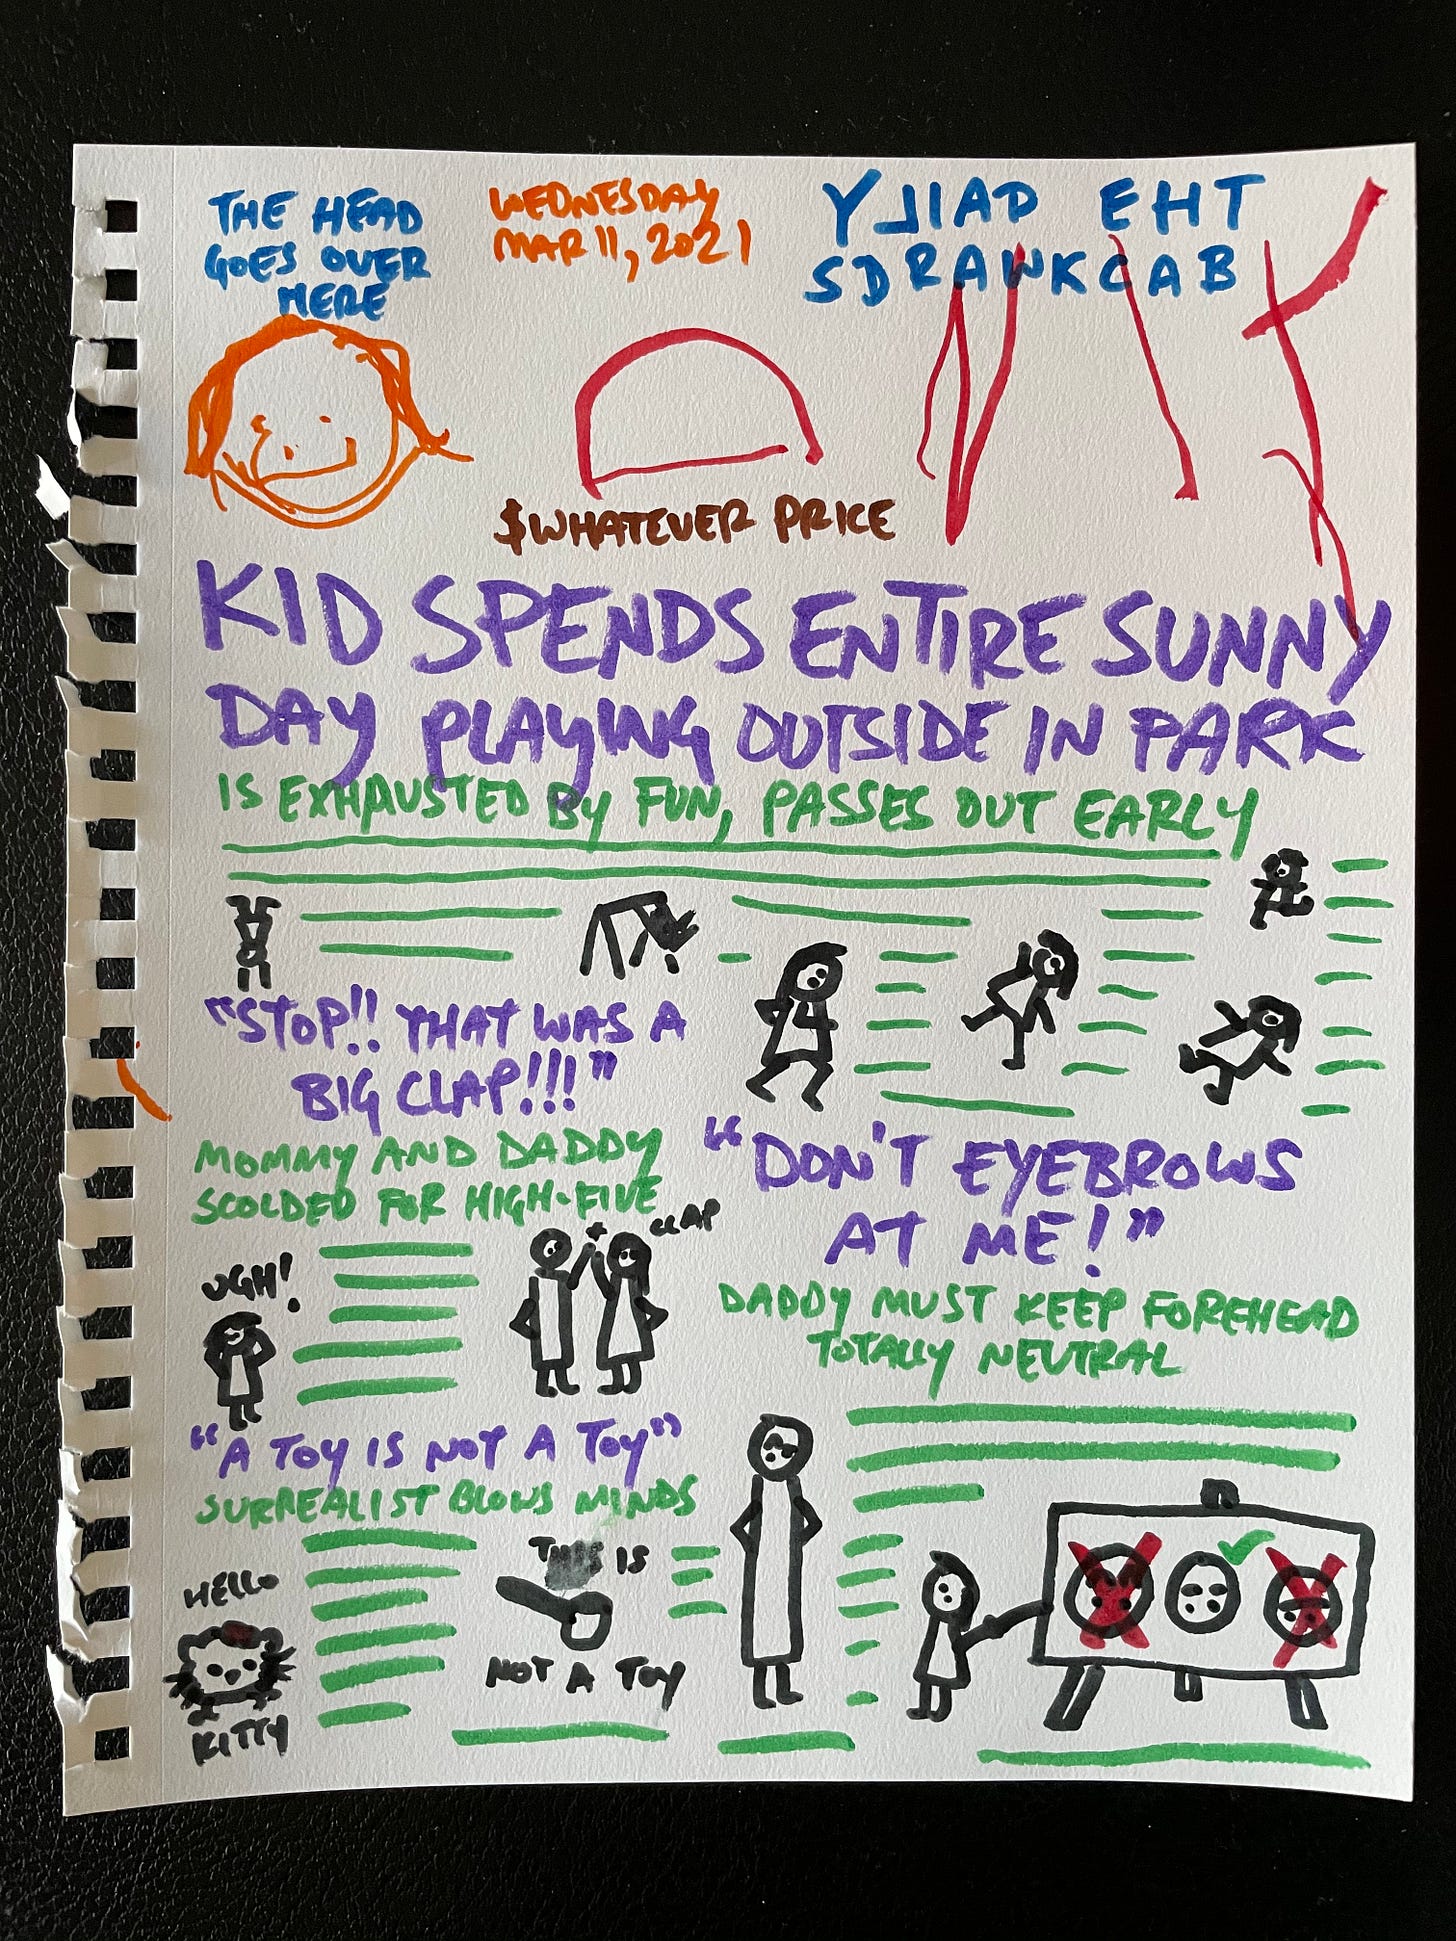 THE HEAD
GOES OVER
HERE
WEDNESDAY
MAR 11, 2021
YLIAD EHT
SDRAWKCAB
$WHATEVER PRICE
KID SPENDS ENTIRE SUNNY
DAY PLAYING OUTSIDE IN PARK
IS EXHAUSTED BY FUN, PASSES OUT EARLY
"STOP!! THAT WAS A
BIG CLAP!!!"
MOMMY AND DADDY
SCOLDED FOR HIGH-FIVE
CLAP
UGH!
"DON'T EYEBROWS
AT ME!"
DADDY MUST KEEP FOREHEAD
TOTALLY NEUTRAL
"A TOY IS NOT A TOY"
SURREALIST BLOWS MINDS
HELLO
KITTY
THIS IS
NOT A TOY